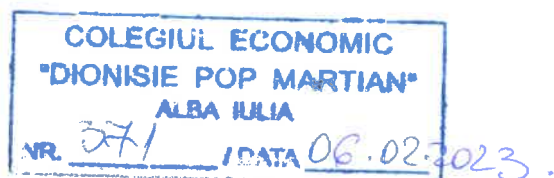 COLEGIUL ECONOMIC
"DIONISIE POP MARTIAN"
ALBA IULIA
NR. 371 / DATA 06.02.2023.